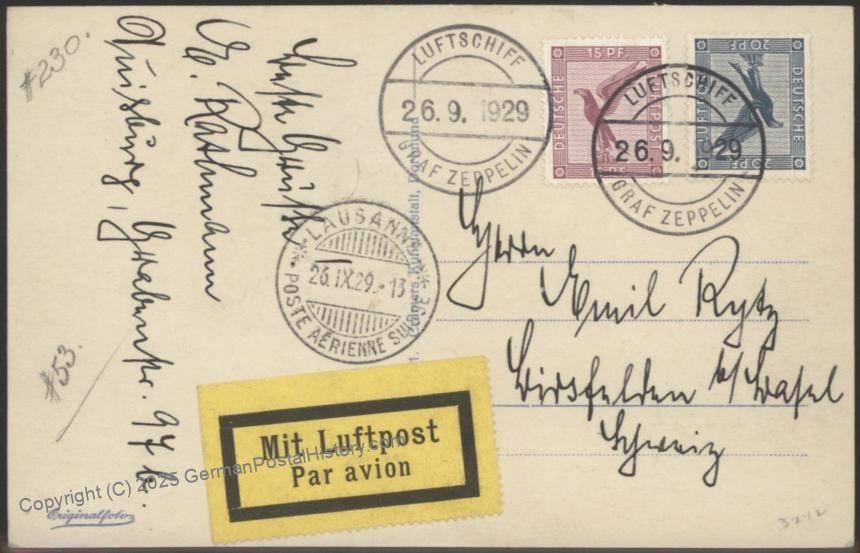 #230.
#53.
Beste Grüße
Rathmann
Duisburg, Grabenstr. 97b.
LUFTSCHIFF
26.9. 1929
GRAF ZEPPELIN
15 PF.
DEUTSCHE
POST
20 PF.
DEUTSCHE
20 PF
LUFTSCHIFF
26.9. 1929
GRAF ZEPPELIN
LAUSANNE
26.IX.29.-13
POSTE AÉRIENNE SUISSE
Cramers Kunstanstalt, Dortmund
Herrn
Emil Rytz
Birsfelden b/Basel
Schweiz
Mit Luftpost
Par avion
Copyright (C) 2025 GermanPostalHistory.com
Originalfoto
3242